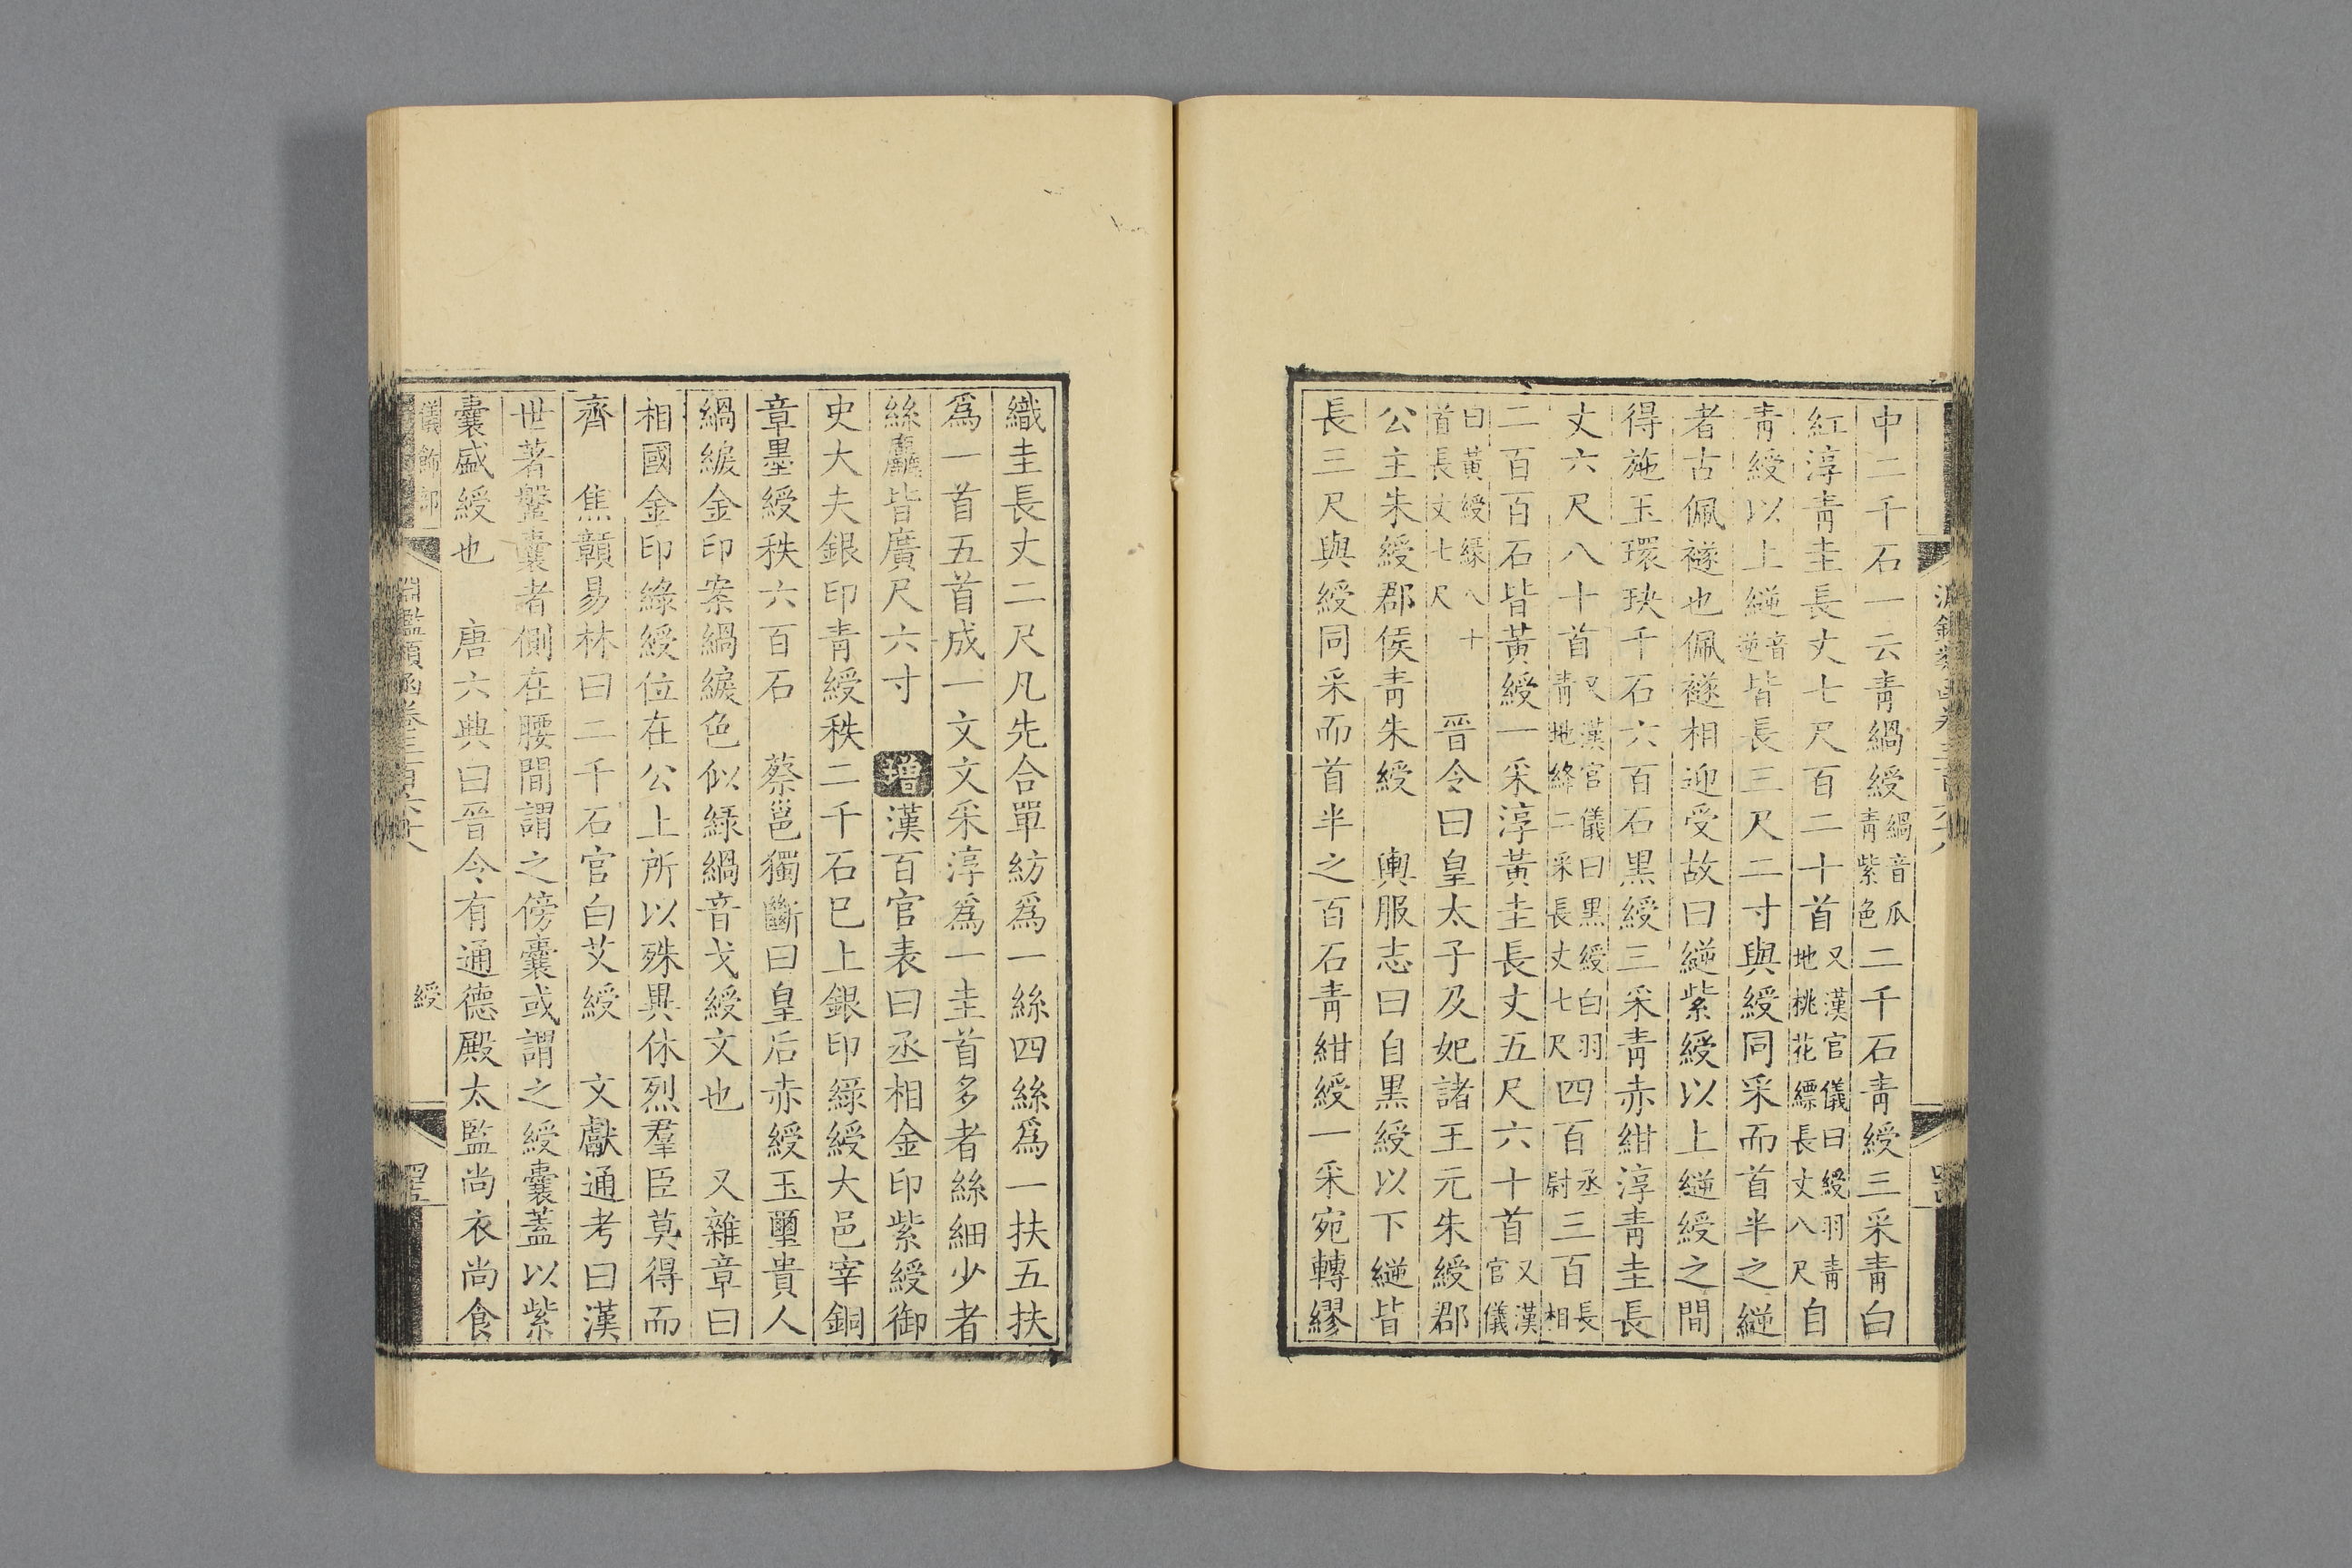 中二千石一云青緺綬緺音瓜青紫色二千石青綬三采青白
紅淳青圭長丈七尺百二十首又漢官儀曰綬羽青地桃花縹長丈八尺自
青綬以上縌音逆皆長三尺二寸與綬同采而首半之縌
者古佩襚也佩襚相迎受故曰縌紫綬以上縌綬之間
得施玉環玦千石六百石黑綬三采青赤紺淳青圭長
丈六尺八十首又漢官儀曰黑綬白羽青地絳二采長丈七尺四百丞尉三百長相
二百百石皆黃綬一采淳黃圭長丈五尺六十首又漢官儀
曰黃綬緣八十首長丈七尺　晉令曰皇太子及妃諸王元朱綬郡
公主朱綬郡侯青朱綬　輿服志曰自黑綬以下縌皆
長三尺與綬同采而首半之百石青紺綬一采宛轉繆
織圭長丈二尺凡先合單紡爲一絲四絲爲一扶五扶
爲一首五首成一文文采淳爲一圭首多者絲細少者
絲麤皆廣尺六寸　增漢百官表曰丞相金印紫綬御
史大夫銀印青綬秩二千石巳上銀印綠綬大邑宰銅
章墨綬秩六百石　蔡邕獨斷曰皇后赤綬玉璽貴人
緺綟金印案緺綟色似綠緺音戈綬文也　又雜章曰
相國金印綠綬位在公上所以殊異休烈羣臣莫得而
齊　焦贑易林曰二千石官白艾綬　文獻通考曰漢
世著鞶囊者側在腰間謂之傍囊或謂之綬囊蓋以紫
囊盛綬也　唐六典曰晉令有通德殿太監尚衣尚食
儀飾部　淵鑑類函卷三百六十八　綬